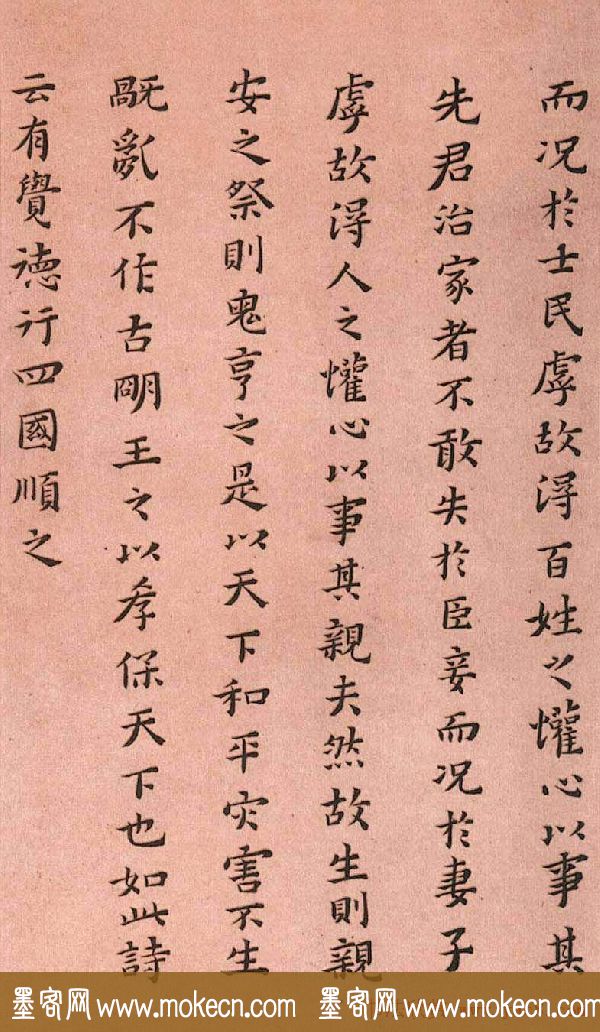 而况於士民虖故淂百姓之懽心以事其
先君治家者不敢失於臣妾而况於妻子
虖故淂人之懽心以事其親夫然故生則親
安之祭則鬼亨之是以天下和平灾害不生
既亂不作古明王之以孝保天下也如此詩
云有覺徳行四國順之
墨客网www.mokecn.com 墨客网www.mokecn.com